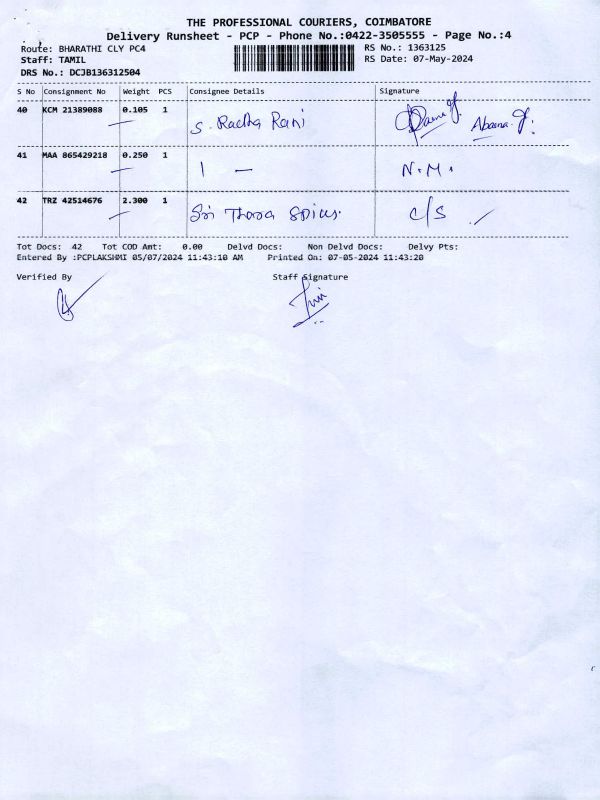 THE PROFESSIONAL COURIERS, COIMBATORE
Delivery Runsheet - PCP - Phone No.:0422-3505555 - Page No.:4
Route: BHARATHI CLY PC4 RS No.: 1363125
Staff: TAMIL RS Date: 07-May-2024
DRS No.: DCJB136312504
S No Consignment No Weight PCS Consignee Details Signature
40 KCM 21389088 0.105 1 S. Radha Rani Abarna.J.
41 MAA 865429218 0.250 1 1 — N.M.
42 TRZ 42514676 2.300 1 Sri Thara Spices. C/S
Tot Docs: 42 Tot COD Amt: 0.00 Delvd Docs: Non Delvd Docs: Delvy Pts:
Entered By :PCPLAKSHMI 05/07/2024 11:43:10 AM Printed On: 07-05-2024 11:43:20
Verified By Staff Signature